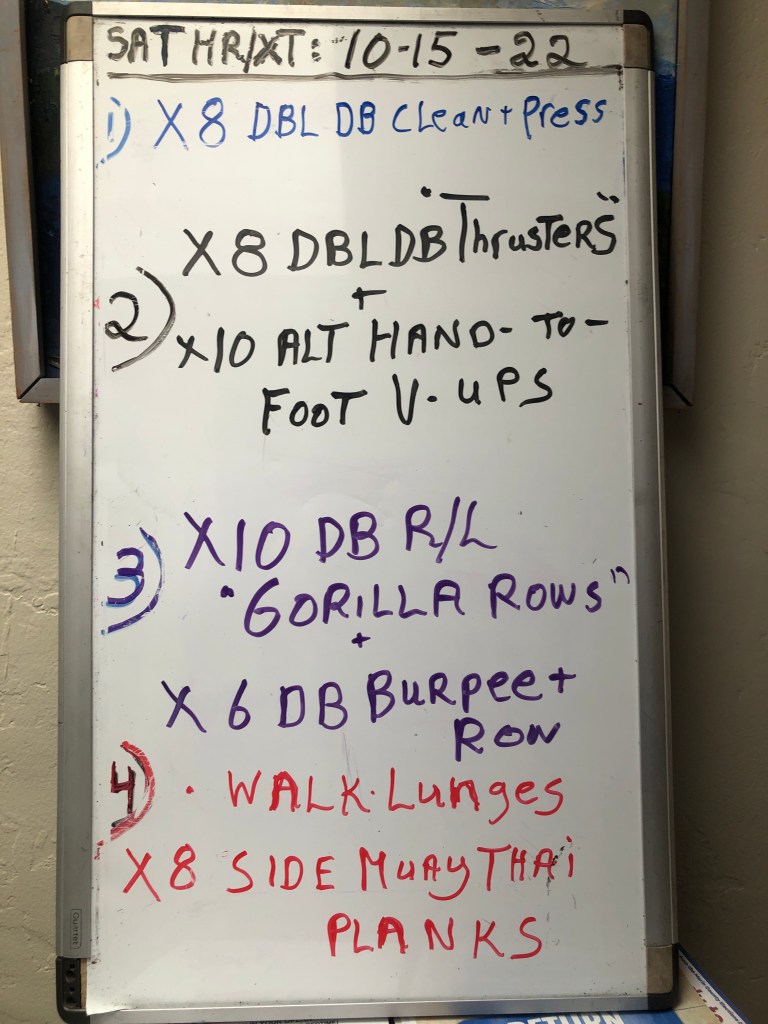 SAT HR/XT: 10-15-22
1) X8 DBL DB Clean + Press
X8 DBL DB "Thrusters"
+
2) X10 ALT HAND-TO-
FOOT V-UPS
3) X10 DB R/L
"GORILLA ROWS"
+
X6 DB Burpee +
ROW
4) • WALK. Lunges
X8 SIDE MUAY THAI
PLANKS
Quartet
RETURN